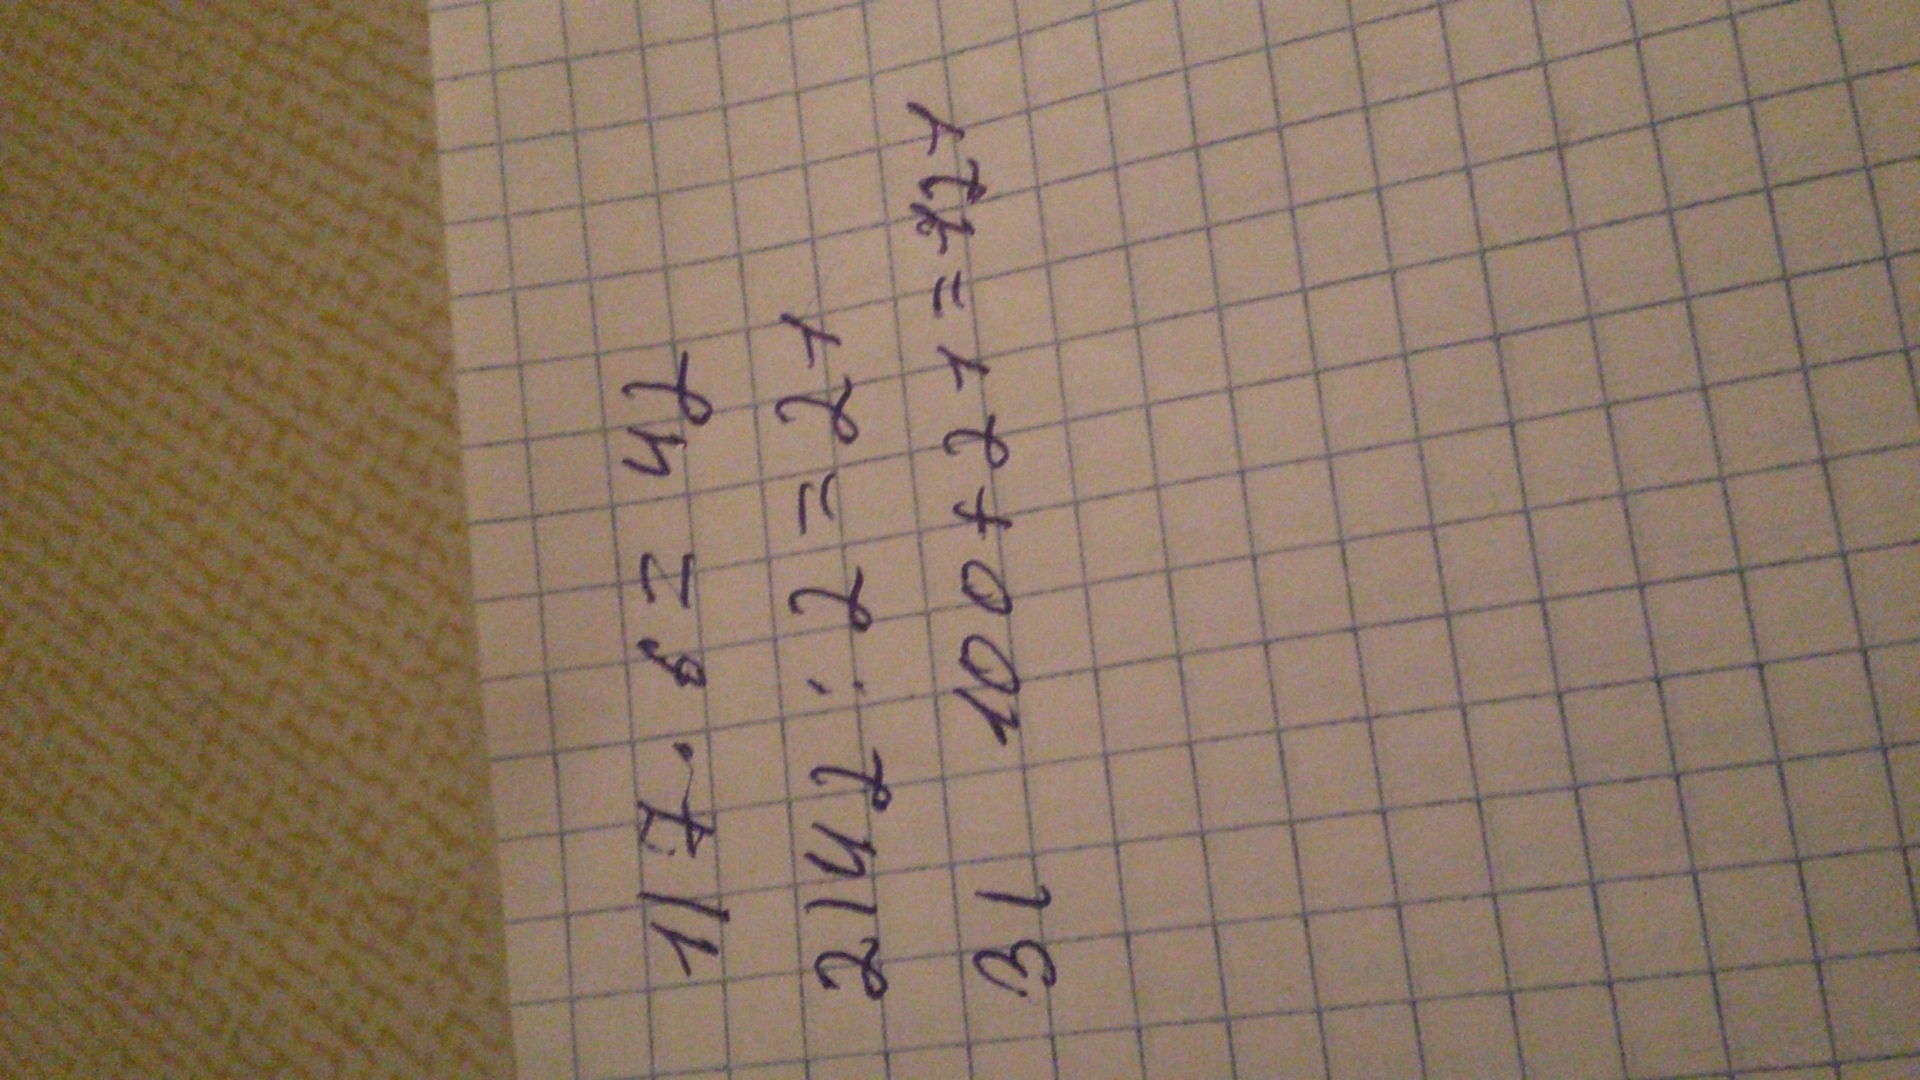 1) 7 · 6 = 42
2) 42 : 2 = 21
3) 100 + 21 = 121